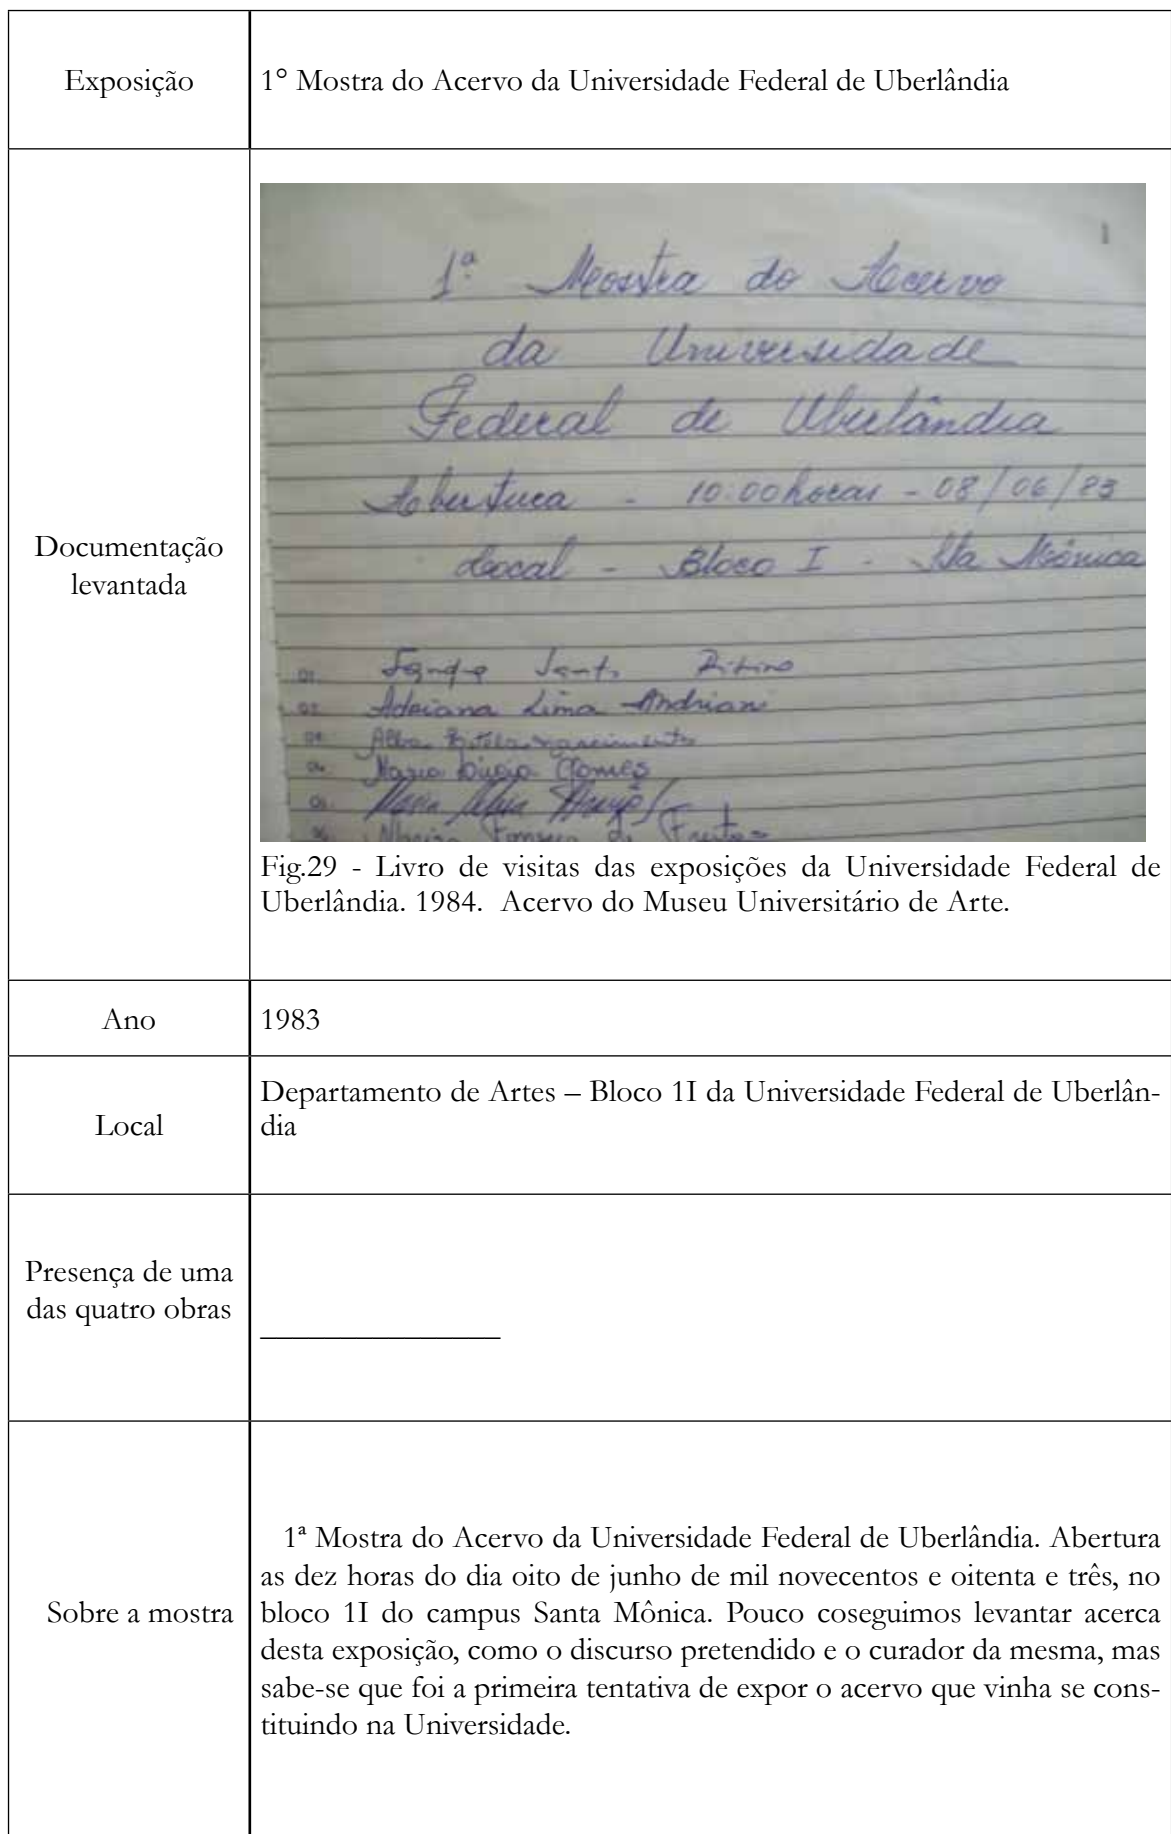 Exposição
1° Mostra do Acervo da Universidade Federal de Uberlândia
Documentação
levantada
1
1ª Mostra do Acervo
da Universidade
Federal de Uberlândia
Abertura - 10:00 horas - 08/06/83
Local - Bloco I - Sta Mônica
01.
02. Adriana Lima Andriani
Alba
Gomes
05. Maria
Fonseca de Freitas
Fig.29 - Livro de visitas das exposições da Universidade Federal de
Uberlândia. 1984. Acervo do Museu Universitário de Arte.
Ano
1983
Local
Departamento de Artes – Bloco 1I da Universidade Federal de Uberlân-
dia
Presença de uma
das quatro obras
Sobre a mostra
1ª Mostra do Acervo da Universidade Federal de Uberlândia. Abertura
as dez horas do dia oito de junho de mil novecentos e oitenta e três, no
bloco 1I do campus Santa Mônica. Pouco coseguimos levantar acerca
desta exposição, como o discurso pretendido e o curador da mesma, mas
sabe-se que foi a primeira tentativa de expor o acervo que vinha se cons-
tituindo na Universidade.